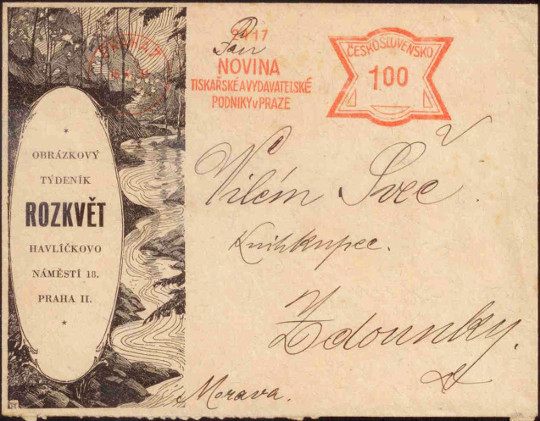 OBRÁZKOVÝ
TÝDENÍK
ROZKVĚT
HAVLÍČKOVO
NÁMĚSTÍ 18.
PRAHA II.
NOVINA
TISKAŘSKÉ A VYDAVATELSKÉ
PODNIKY V PRAZE
ČESKOSLOVENSKO
100
Pan
Vilém Švec.
Knihkupec.
Zdounky.
Morava.